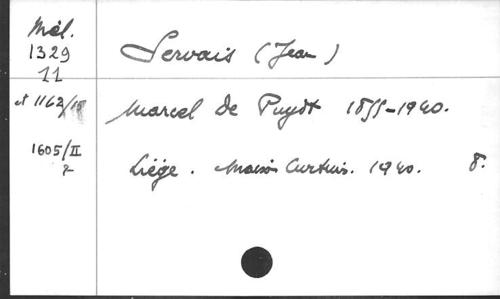 Mél.
1329
11
et 1162/
1605/II
2
Servais (Jean)
Marcel de Puydt 1855-1940.
Liége. Maison Curtius. 1940. 8.